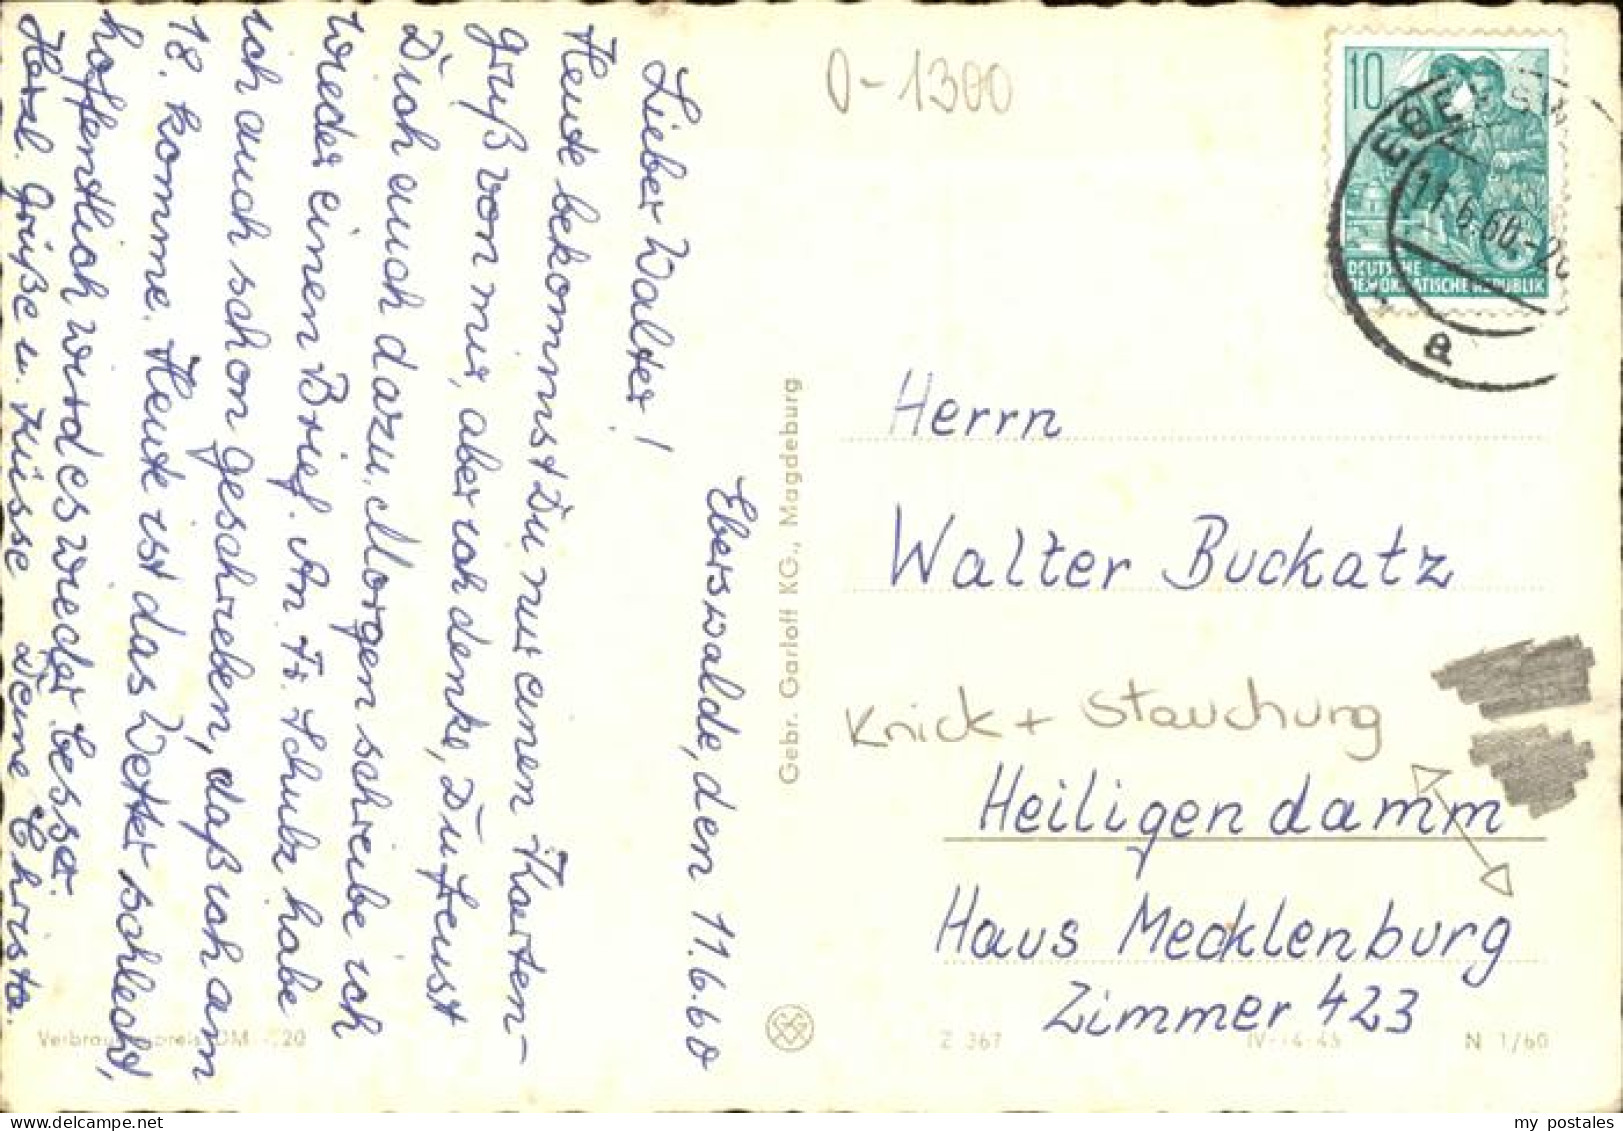 Eberswalde, den 11.6.60
Lieber Walter!
Heute bekommst Du nur einen Karten-
gruß von mir, aber ich denke, Du freust
Dich auch dazu. Morgen schreibe ich
wieder einen Brief. An Fr. Schulz habe
ich auch schon geschrieben, daß ich am
18. komme. Heute ist das Wetter schlecht,
hoffentlich wird es wieder besser.
Herzl. Grüße u. Küsse Deine Christa.
Verbraucherpreis DM 20
Gebr. Garloff KG., Magdeburg
0-1300
10
DEUTSCHE
DEMOKRATISCHE REPUBLIK
11.6.60.-20
a
Herrn
Walter Buckatz
Knick + Stauchung
Heiligendamm
Haus Mecklenburg
Zimmer 423
Z 367
N 1/60
my postales